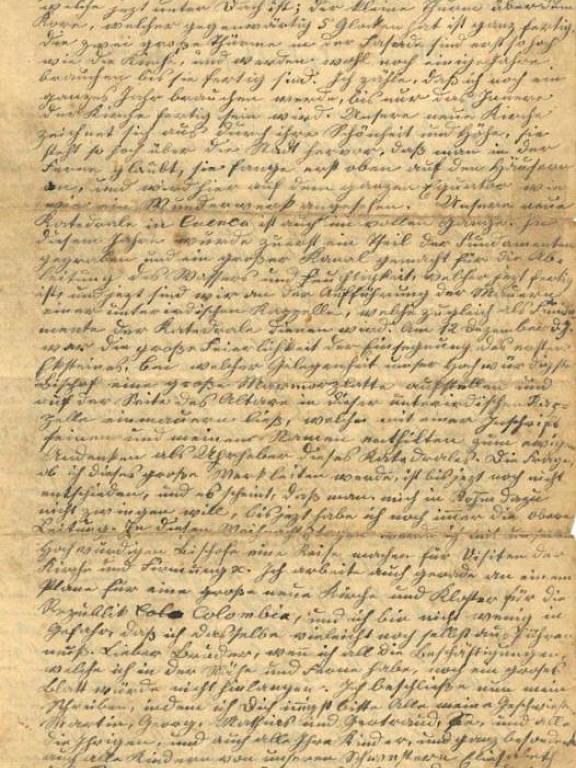 welche jezt unter Dach ist; der kleine Thurm über dem
Kore, welcher gegenwärtig 5 Glocken hat ist ganz fertig.
Die zwei große Thürme in der Fasade sind erst so hoch
wie die Kirche, und werden wohl noch einige Jahre
brauchen bis sie fertig sind. Ich zähle, daß ich noch ein
ganzes Jahr brauchen werde, bis nur das Innere
der Kirche fertig sein wird. Unsere neue Kirche
zeichnet sich aus durch ihre Schönheit und Höhe, sie
steht so hoch über die Stadt hervor, daß man in der
Ferne glaubt, sie fange erst oben auf den Häusern
an, und wird hier auf dem ganzen Equator wie
wie ein Wunderwerk angesehen. Unsere neue
Katedrale in Cuenca ist auch im vollen Gange. In
diesem Jahre wurde zuerst ein Theil der Fundamenten
gegraben und ein großer Kanal gemacht für die Ab-
leitung des Wassers und Feuchtigkeit, welcher jezt fertig
ist, und jezt sind wir an der Aufführung der Mauern
einer unterirdischen Kapelle, welche zugleich als Funda
mente der Katedrale dienen wird. Am 12 Dezember
war die große Feierlichkeit der Einsegnung des ersten
Ecksteines, bei welcher Gelegenheit unser Hochwürdigste
Bischof eine große Marmorplatte aufstellen und
auf der Seite des Altars in dieser unterirdischen Kap-
zelle einmauern ließ, welche mit einer Inschrift
seinen und meinen Namen enthälten zum ewigen
Andenken als Uhrheber dieses Katedrales. Die Frage,
ob ich dieses große Werk leiten werde, ist bis jezt noch nicht
entschieden, und es scheint, daß man mich in Rohm dazu
nicht zwingen will, bis jezt habe ich noch imer die obere
Leitung. In diesen
Hochwürdigen Bischofe eine Reise machen für Visiten der
Kirche und Firmung &c. Ich arbeite auch gerade an einem
Plane für eine große neue Kirche und Kloster für die
Republik Colombia, und ich bin nicht wenig in
Gefahr, daß ich dasselbe vieleicht noch selbst ausführen
muß. Lieber Bruder, wen ich all die Beschäftigungen,
welche ich in der Nähe und Ferne habe, noch ein großes
Blatt würde nicht hinlangen. Ich beschließe nun mein
Schreiben, indem ich Dich innigst bitte Alle meine Geschwister
Martin, Georg, Mathias und Gertraud, und alle
die Ihrigen, und auch alle Ihre Kinder, und ganz besonders
auch alle Kindern von unseren Schwestern Elisabeth